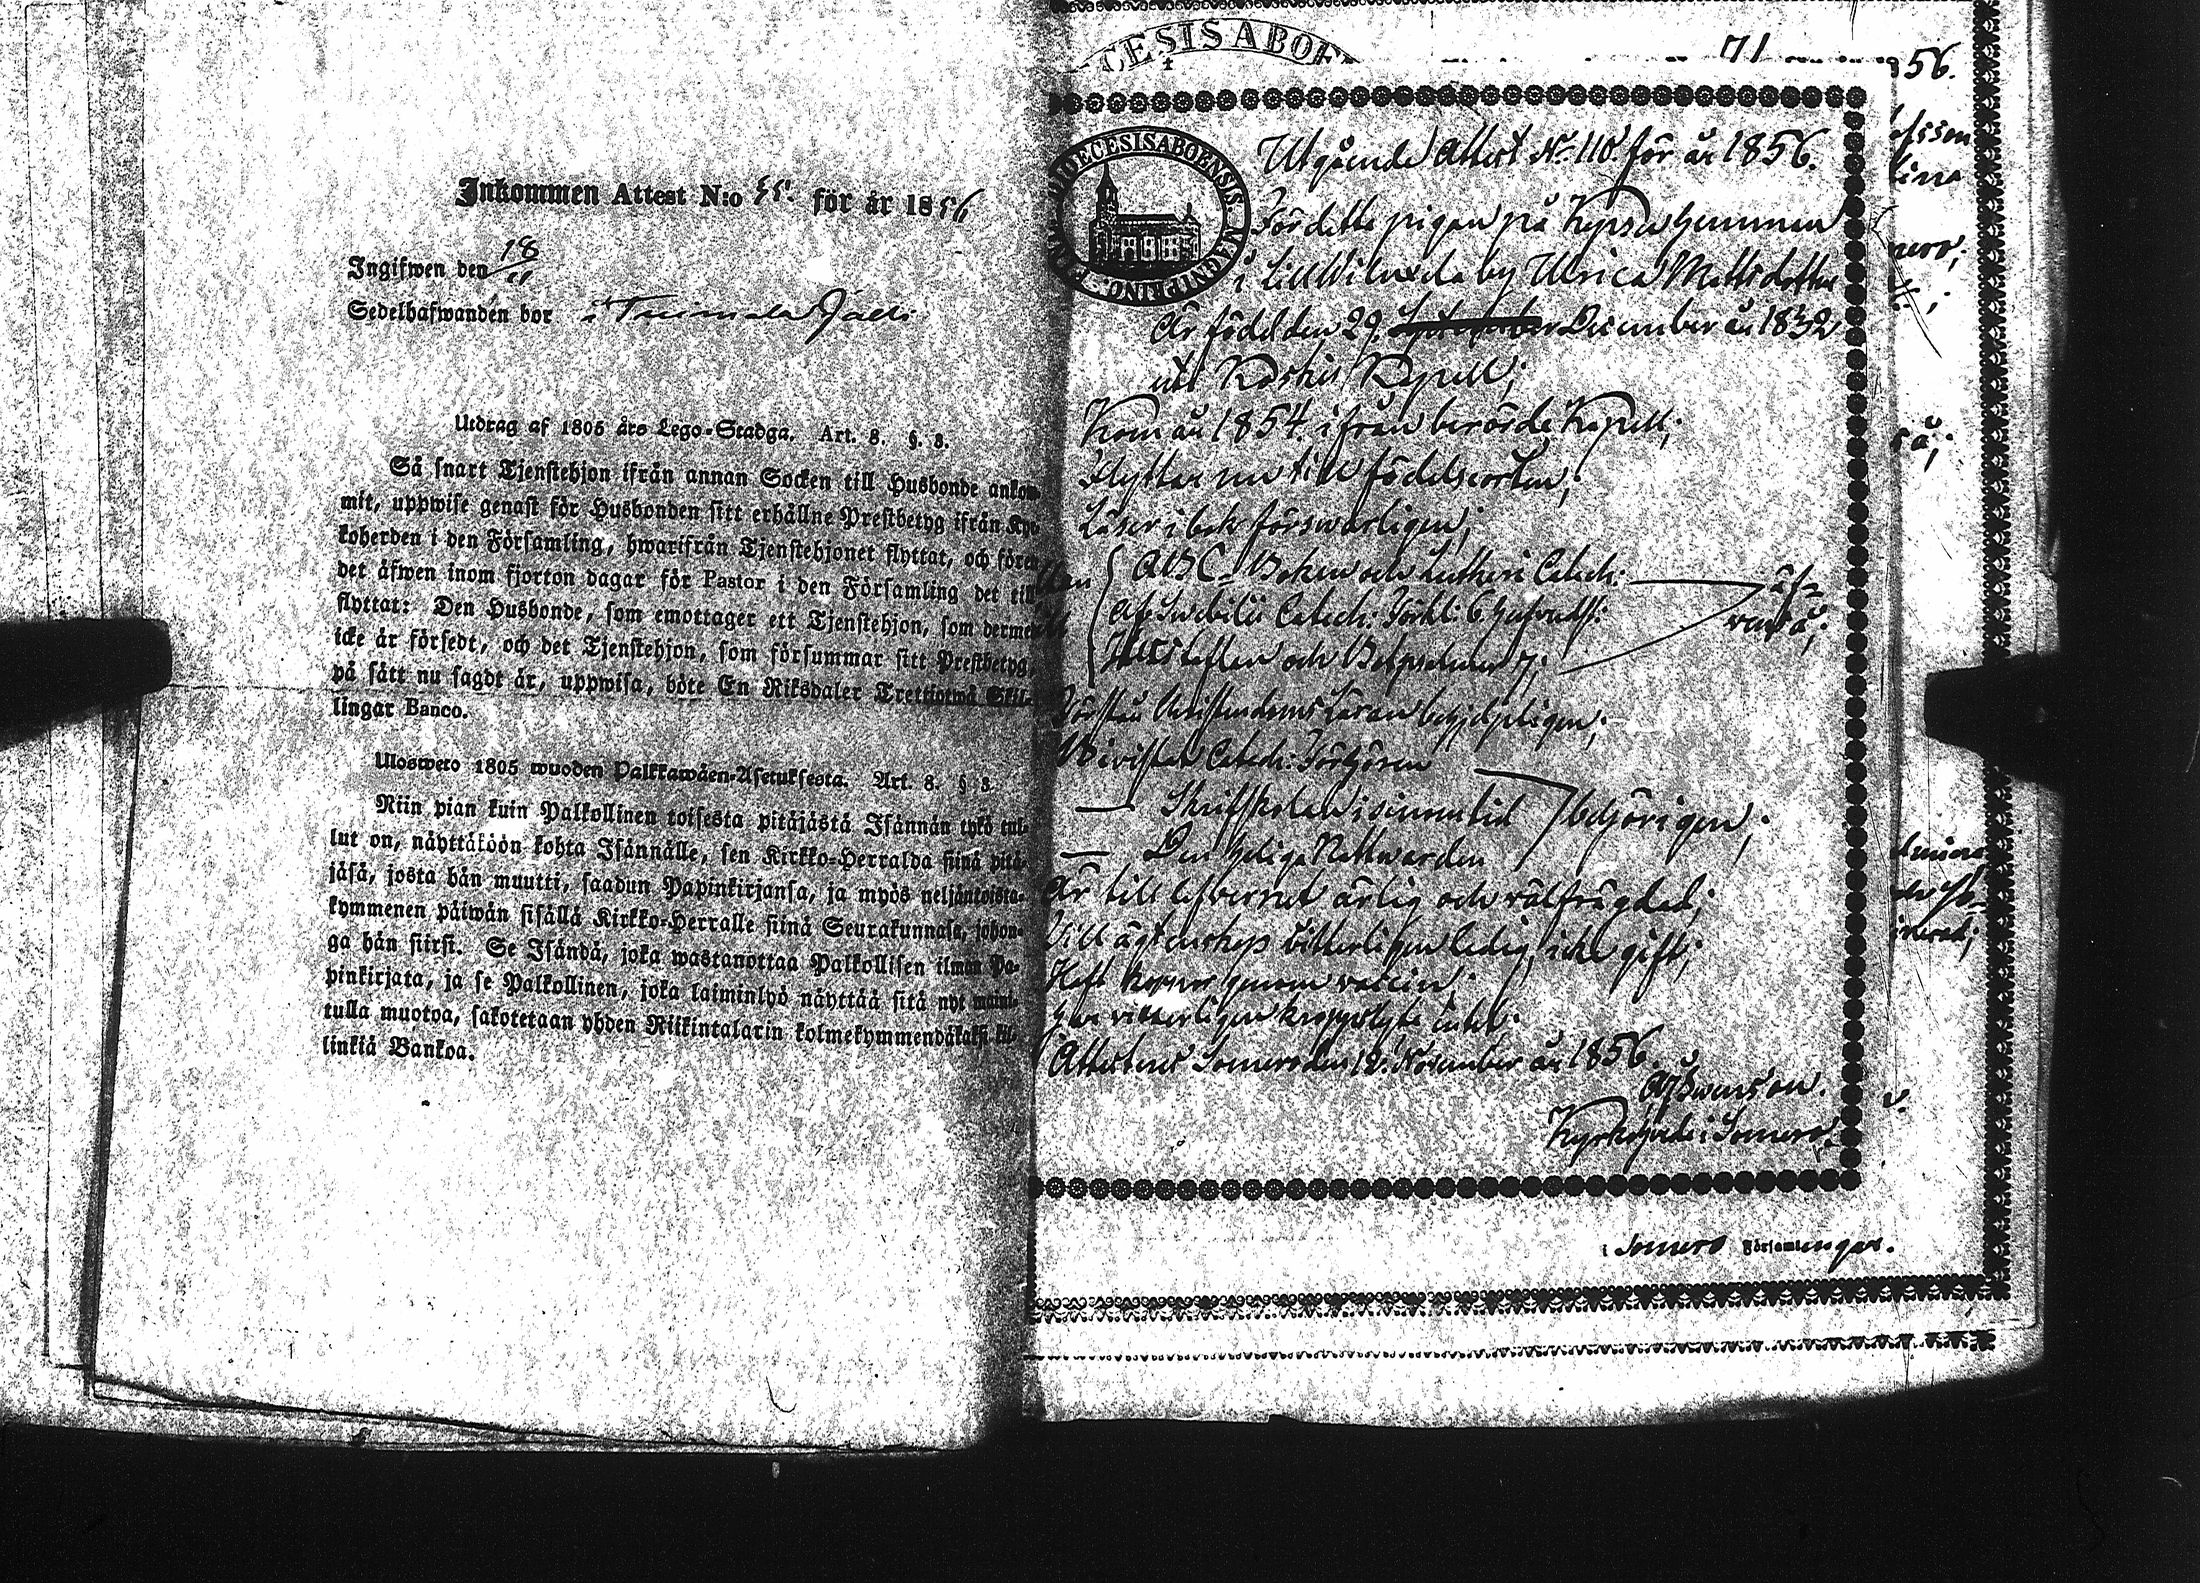 Inkommen Attest N:o 55. för år 1856
Ingifwen den 18/11
Sedelhafwanden bor i
Utdrag af 1805 års Lego-Stadga. Art. 8. §. 8.
Så snart Tjenstehjon ifrån annan Socken till Husbonde ankom-
mit, uppwise genast för Husbonden sitt erhållne Prestbetyg ifrån Kyr-
koherden i den Församling, hwarifrån Tjenstehjonet flyttat, och förete
det äfwen inom fjorton dagar för Pastor i den Församling det till-
flyttat: Den Husbonde, som emottager ett Tjenstehjon, som dermed
icke är försedt, och det Tjenstehjon, som försummar sitt Prestbetyg,
på sätt nu sagdt är, uppwisa, böte En Riksdaler Trettiotwå Skil-
lingar Banco.
Ulosweto 1805 wuoden Palkkawäen-Asetuksesta. Art. 8. § 8.
Niin pian kuin Palkollinen toisesta pitäjästä Isännän tykö tul-
lut on, näyttäköön kohta Isännälle, sen Kirkko-Herralda siinä pitä-
jäsä, josta hän muutti, saadun Papinkirjansa, ja myös neljäntoista-
kymmenen päiwän sisällä Kirkko-Herralle siinä Seurakunnasa, johon-
ga hän siirsi. Se Isändä, joka wastanottaa Palkollisen ilman Pa-
pinkirjata, ja se Palkollinen, joka laiminlyö näyttää sitä nyt maini-
tulla muotoa, sakotetaan yhden Riikintalarin kolmekymmendäkaksi kil-
linkiä Bankoa.
CESIS ABOE
71
56.
DIOECESIS ABOENSIS MAGNI PRINC. FINL
Utgående Attest No. 110. för år 1856.
Före detta pigan på hemman
i by Ulrica Mattsdotter
Är född den 29. December år 1832
uti Koskis Kapell;
Kom år 1854. ifrån berörde Kapell;
Flyttar nu till födelseorten;
Läser i bok förswarligen;
Utan
ABC-Boken och Lutheri Catech:
Af Swebilii Catech: Förkl: 6 Hufvudst:
Hustaflan och Botpsalmer 7;
äf-
ven så;
Förstår Christendoms Läran behjelpligen;
Bivistat Catech: Förhören
— Skriftskolan i sinom tid behörigen;
— Den heliga Nattwarden
Är till lefvernet ärlig och välfrägdad;
Till ägtenskap vitterligen ledig, icke gift;
Haft koppor genom vaccin;
Har vitterligen kroppslyte intet.
Attesterar Somero den 12. November år 1856.
Kyrkoherde i Somero.
i Somero Församlingar.